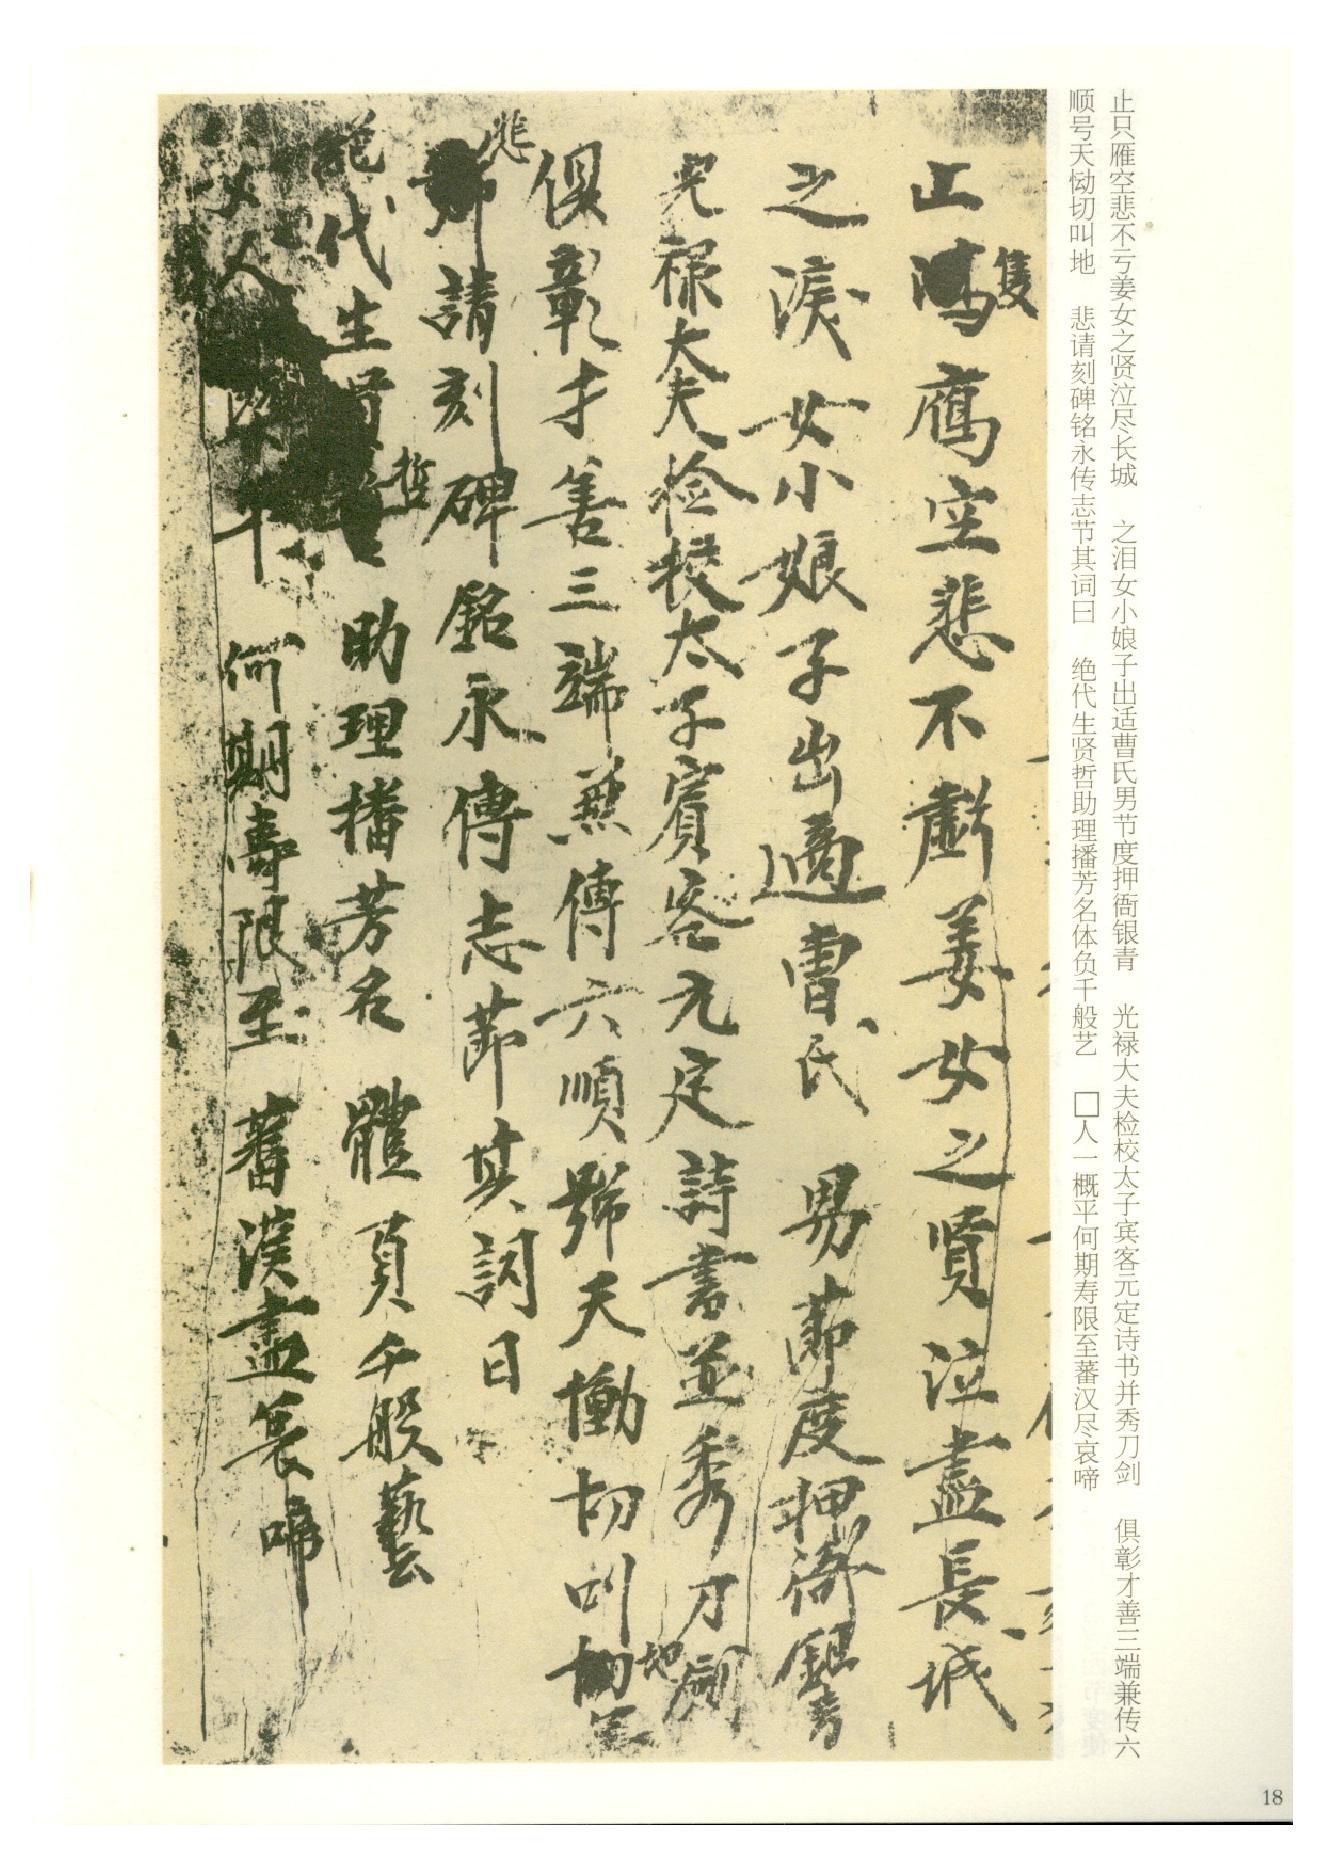 止只雁空悲不亏姜女之贤泣尽长城 之泪女小娘子出适曹氏男节度押衙银青 光禄大夫检校太子宾客元定诗书并秀刀剑 俱彰才善三端兼传六
顺号天恸切叫地 悲请刻碑铭永传志节其词曰 绝代生贤哲助理播芳名体负千般艺 □人一概平何期寿限至蕃汉尽哀啼
止隻鴈空悲不虧姜女之賢泣盡長城
之淚女小娘子出適曹氏男節度押衙銀青
光禄大夫检校太子賓客元定詩書並秀刀劍
俱彰才善三端兼傳六順號天慟切叫地
悲請刻碑銘永傳志節其詞曰
絶代生賢哲助理播芳名體負千般藝
人 平何期壽限至蕃漢盡哀啼
18